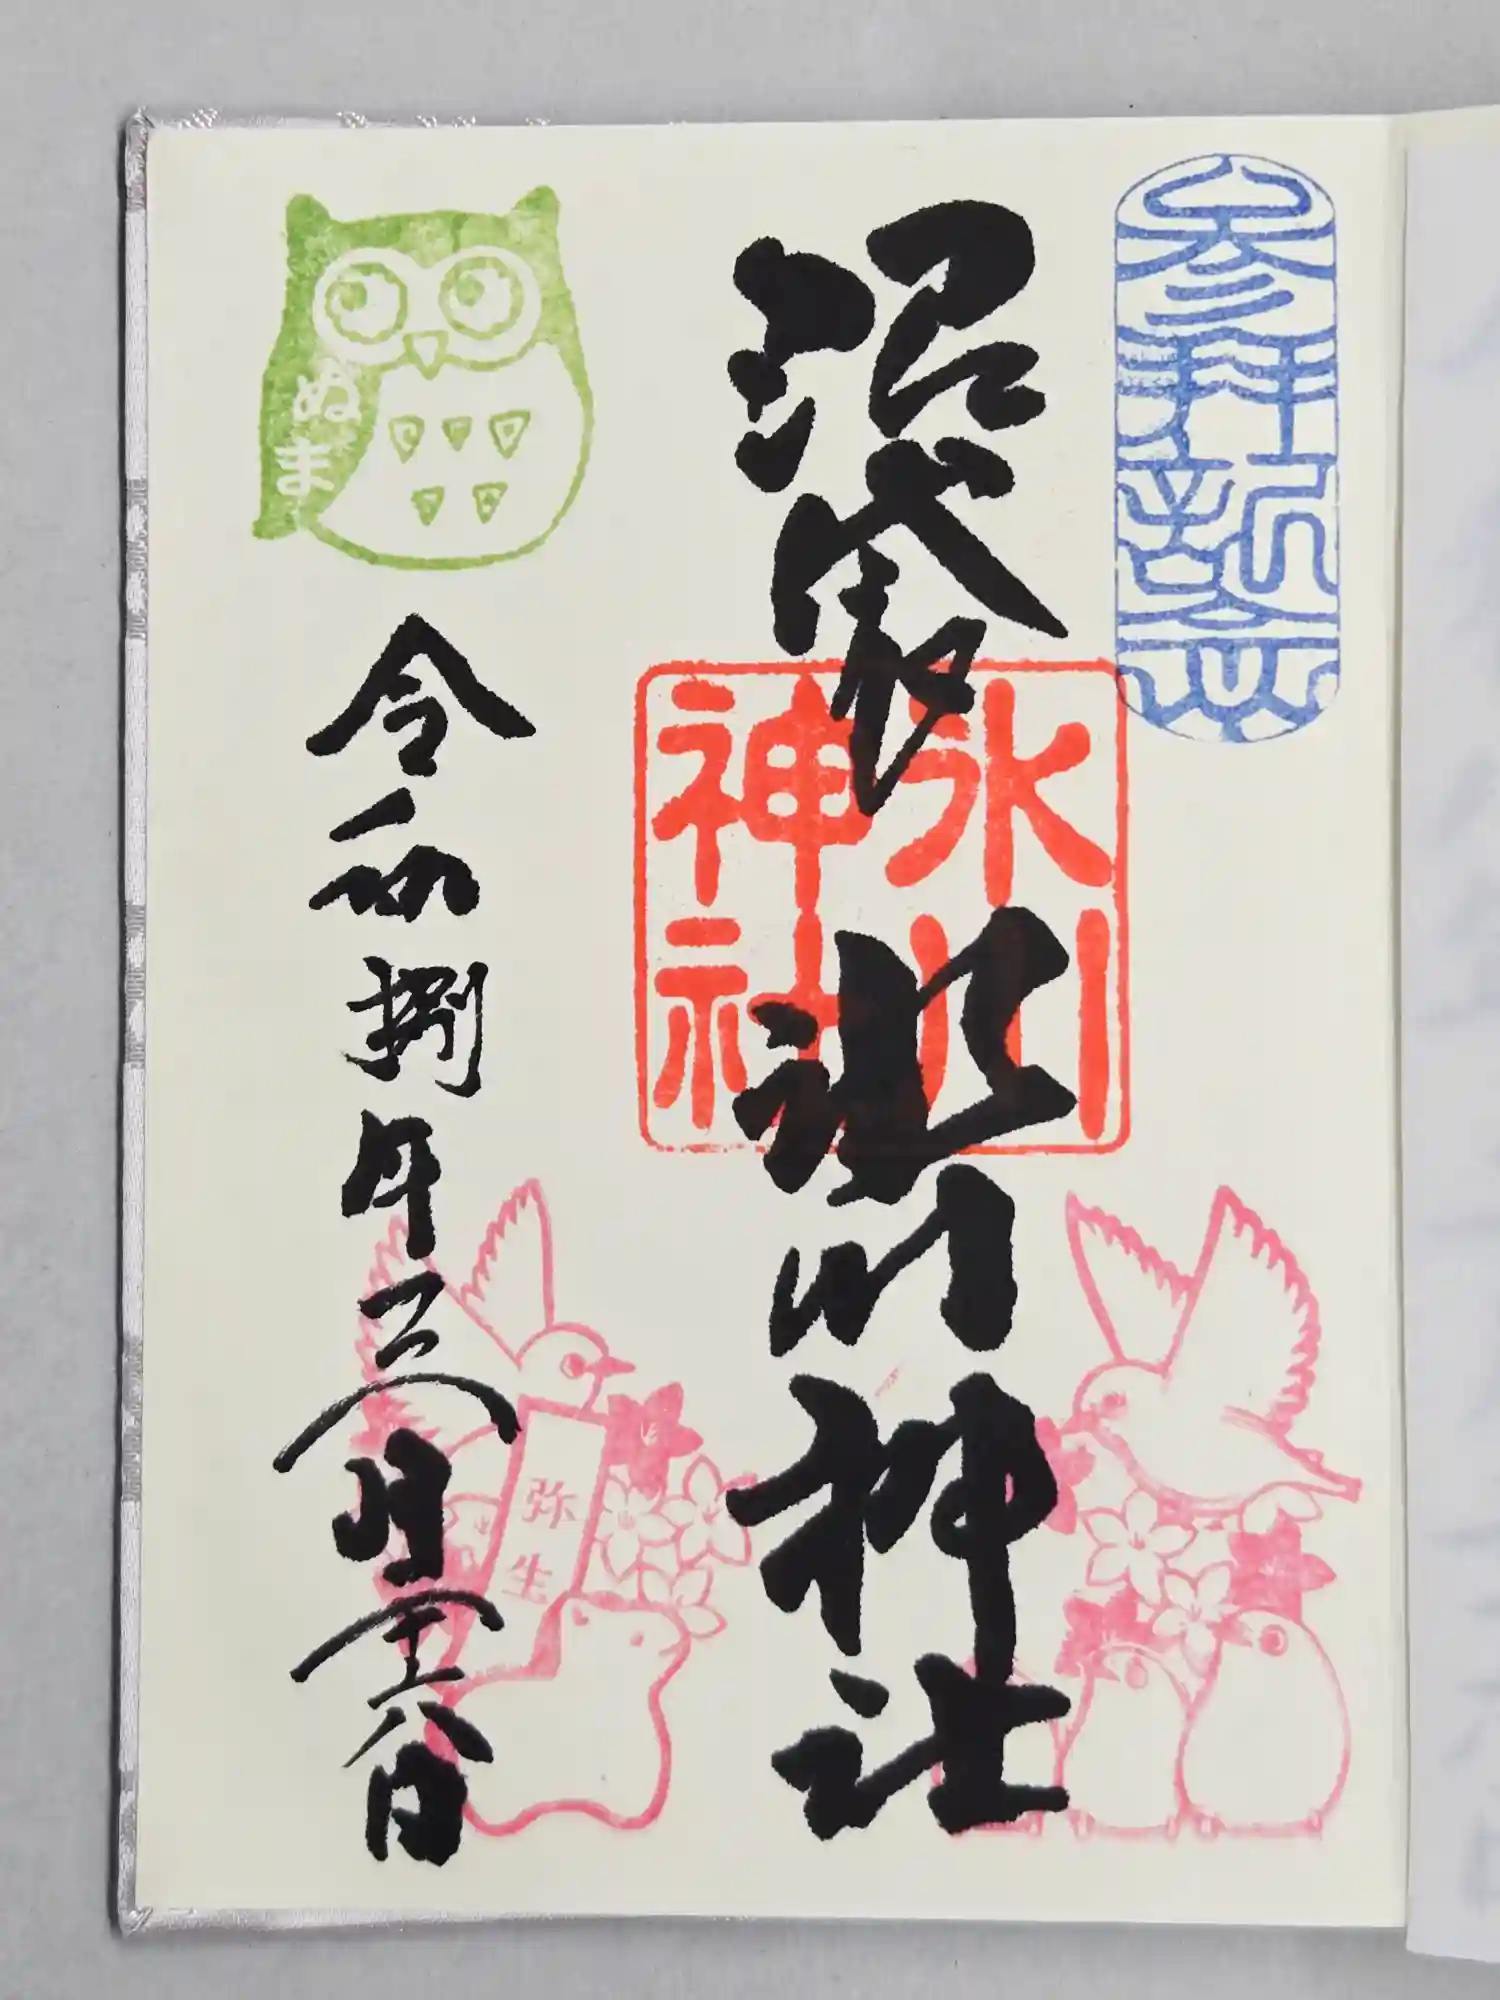 参拝記念
沼袋氷川神社
氷川
神社
ぬま
令和捌年三月八日
弥生